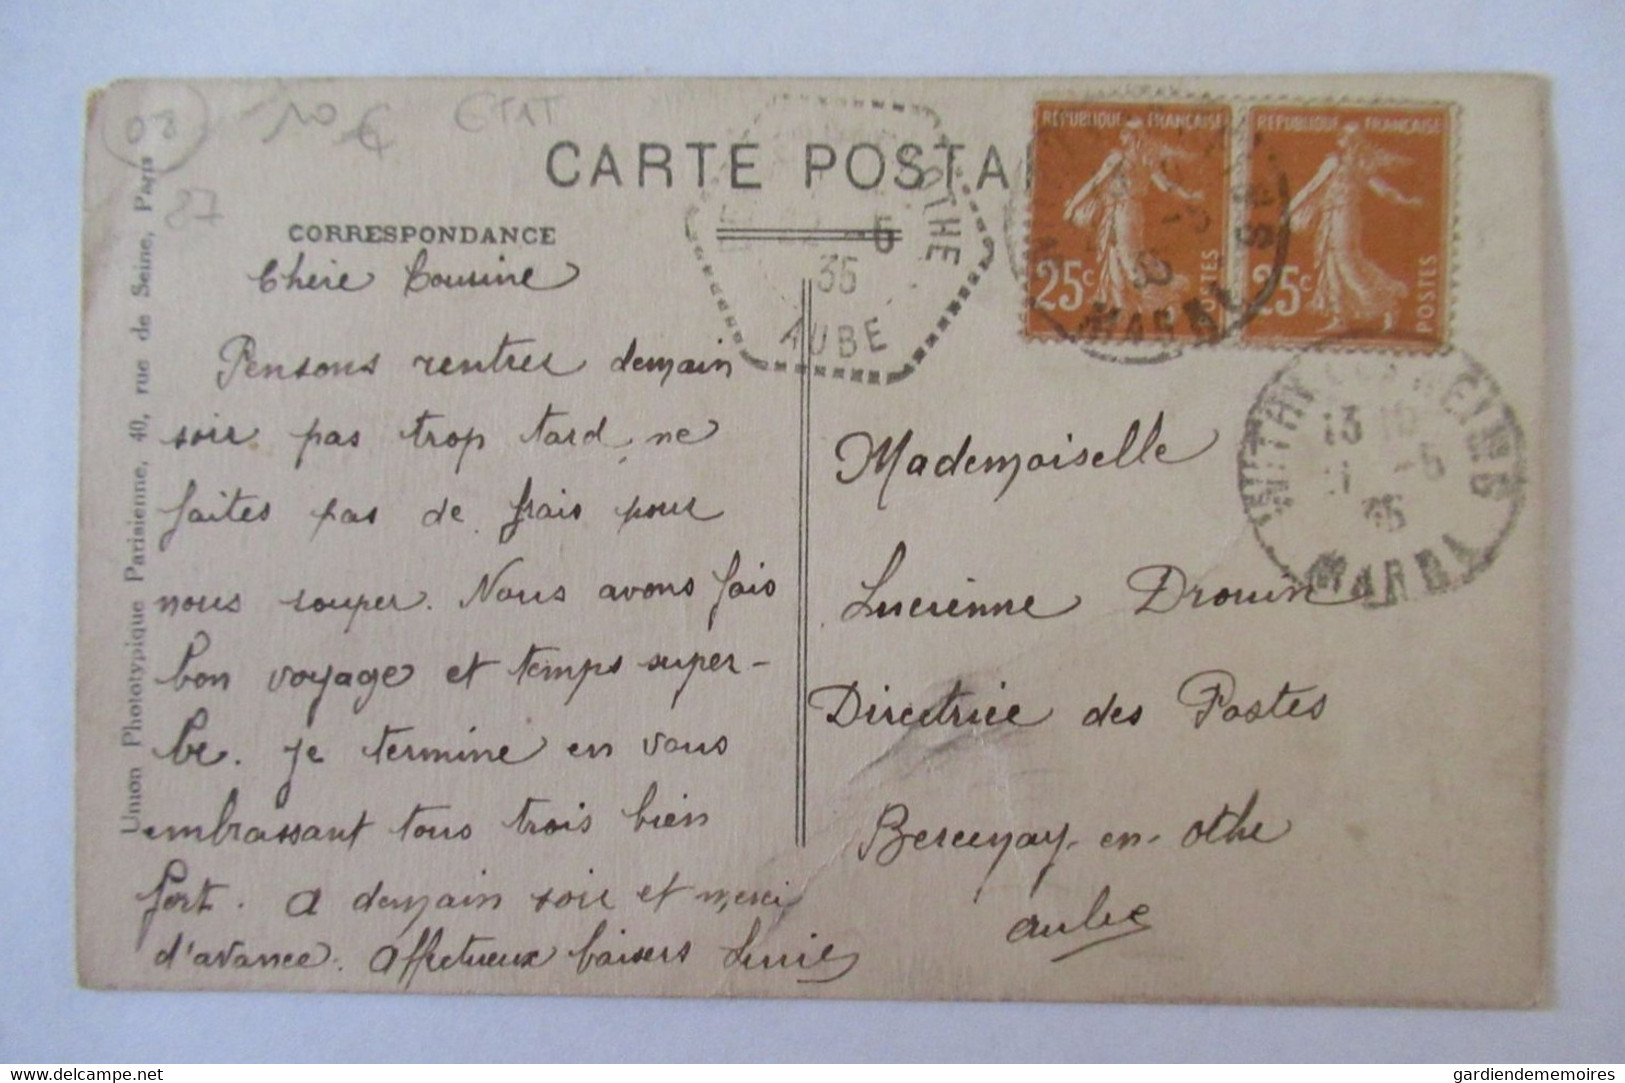 08
10 €
ETAT
87
CARTE POSTA
CORRESPONDANCE
Chère Cousine
Pensons rentrer demain
soir pas trop tard, ne
faites pas de frais pour
nous souper. Nous avons fais
bon voyage et temps super-
be. Je termine en vous
embrassant tous trois bien
fort. A demain soir et merci
d'avance. Affectueux baisers
Union Phototypique Parisienne, 40, rue de Seine, Paris
OTHE
22 -5
35
AUBE
REPUBLIQUE FRANÇAISE
25c
POSTES
REPUBLIQUE FRANÇAISE
25c
POSTES
MARNE
13 15
-5
35
MARNE
Mademoiselle
Lucienne Drouin
Directrice des Postes
Bercenay-en-Othe
Aube
www.delcampe.net
gardiendememoires